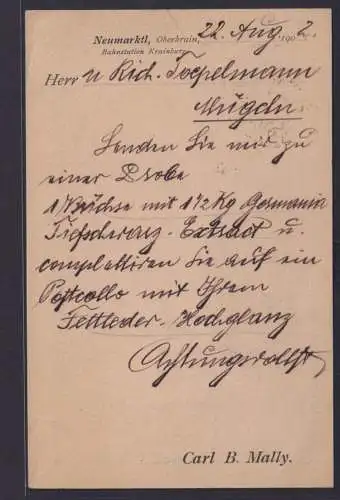 Neumarktl, Oberkrain, 22. Aug. 1902.
Bahnstation Krainburg
Herr u Rich. Toepelmann
Mügeln.
Senden Sie mir zu
einer Probe
1 Büchse mit 1 1/2 Kg Germania
Tiefschwarz-Extract u.
complettiren Sie auf ein
Postcollo mit Ihrem
Fettleder-Hochglanz
Achtungsvollst
Carl B. Mally.